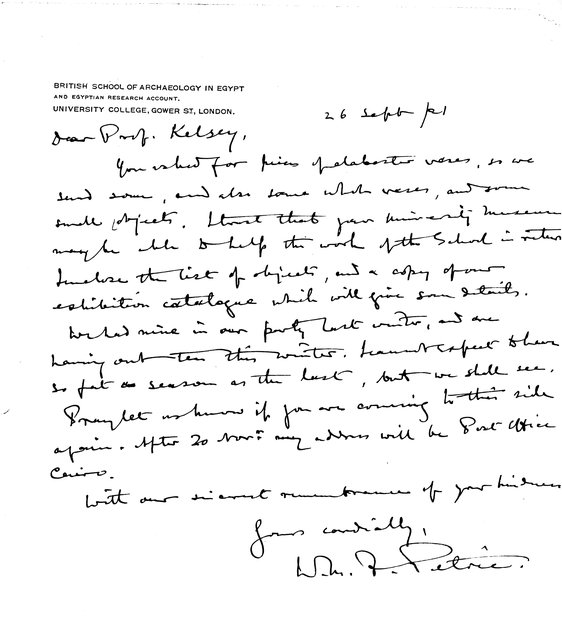 BRITISH SCHOOL OF ARCHAEOLOGY IN EGYPT
AND EGYPTIAN RESEARCH ACCOUNT,
UNIVERSITY COLLEGE, GOWER ST, LONDON.
26 Sept /21
Dear Prof. Kelsey,
You asked for pieces of alabaster vases, so we
send some, and also some whole vases, and some
small objects. I trust that your University Museum
may be able to help the work of the School in return
I enclose the list of objects, and a copy of our
exhibition catalogue which will give some details.
We had nine in our party last winter, and are
having out ten this winter. I cannot expect to have
so fat a season as the last, but we shall see.
Pray let us know if you are coming to this side
again. After 20 Novr my address will be Post Office
Cairo.
With our sincerest remembrance of your kindness
Yours cordially,
W.M. F. Petrie.